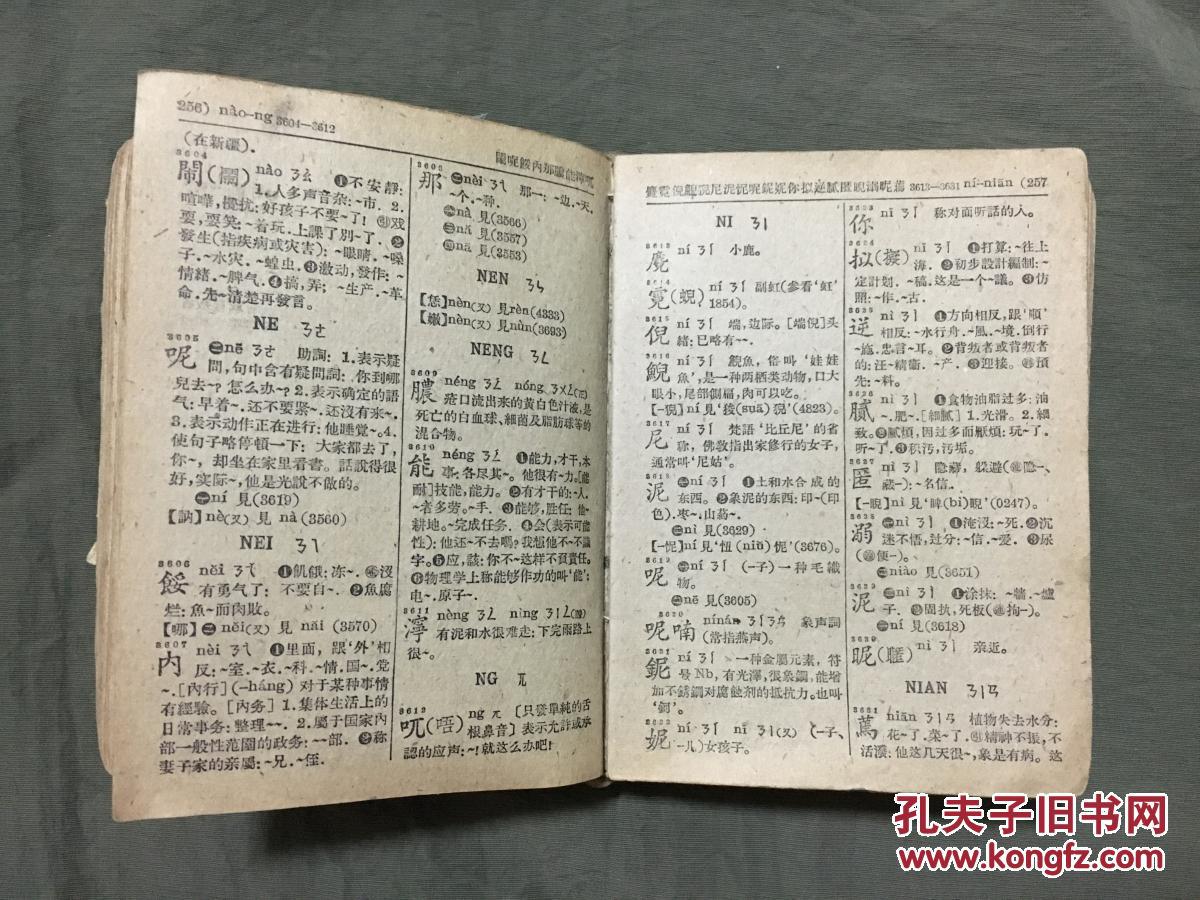 256) nào—ng 3604—3612
(在新疆).
3604
鬧(閙) nào ㄋㄠ ❶不安靜:
1.人多声音杂:~市. 2.
喧嘩,攪扰:好孩子不要~了!
耍,耍笑:~着玩.上課了別~了. ❷
發生(指疾病或灾害):~眼睛.~嗓
子.~水灾.~蝗虫. ❸激动,發作:~
情緒.~脾气. ❹搞,弄:~生产.~革
命.先~清楚再發言。
NE ㄋㄜ
3605
呢 ㊀nē ㄋㄜ 助詞: 1.表示疑
問,句中含有疑問詞:你到哪
兒去~?怎么办~? 2.表示确定的語
气:早着~.还不要緊~.还沒有來~.
3.表示动作正在进行:他睡覺~. 4.
使句子略停頓一下: 大家都去了,
你~, 却坐在家里看書。話說得很
好,实际~,他是光說不做的。
㊁ní 見(3619)
【訥】nè(又) 見 nà (3560)
NEI ㄋㄟ
3606
餒 něi ㄋㄟ ❶飢餓:冻~.
有勇气了: 不要自~. ❷魚腐
烂:魚~而肉敗。
【哪】㊁něi(又) 見 nǎi (3570)
3607
內 nèi ㄋㄟ ❶里面,跟‘外’相
反:~室.~衣.~科.~情.国~.党
~.[內行](-háng) 对于某种事情
有經驗。[內务] 1.集体生活上的
日常事务:整理~~. 2.屬于国家內
部一般性范圍的政务:~~部. ❷称
妻子家的亲屬:~兄.~侄.
3608
那 ㊀nèi ㄋㄟ 那一:~边.~天.
~个.~种.
㊁nà 見(3566)
㊂nā 見(3557)
㊃nǎ 見(3553)
NEN ㄋㄣ
【恁】nèn(又) 見rèn(4333)
【嫩】nèn(又) 見nùn(3693)
NENG ㄋㄥ
3609
膿 néng ㄋㄥ nóng ㄋㄨㄥ(又)
瘡口流出來的黄白色汁液,是
死亡的白血球、細菌及脂肪球等的
混合物。
3610
能 néng ㄋㄥ ❶能力,才干,本
事:各尽其~. 他很有~.[能
耐]技能,能力。❷有才干的:~人.
~者多劳.~手. ❸能够,胜任: 他~
耕地。~完成任务. ❹会(表示可能
性):他还~不去嗎?我想他不~不識
字。❺应,該:你不~这样不負責任。
❻物理学上称能够作功的叫‘能’:
电~.原子~.
3611
濘 nèng ㄋㄥ nìng ㄋㄧㄥ
有泥和水很难走:下完雨路上
很~。
NG ㄫ
3612
吭(唔) ng ㄫ [只發單純的舌
根鼻音]表示允許或承
認的应声:~!就这么办吧!
3613—3631 ní—niān (257
NI ㄋㄧ
3613
麑 ní ㄋㄧ 小鹿。
3614
霓(蜺) ní ㄋㄧ 副虹(参看‘虹’
1854)。
3615
倪 ní ㄋㄧ 端,边际。[端倪]头
緒:已略有~~.
3616
鯢 ní ㄋㄧ 鯢魚, 俗叫‘娃娃
魚’,是一种两栖类动物,口大
眼小,尾部側扁,肉可以吃。
[-猊]ní見‘狻(suān)猊’(4823)。
3617
尼 ní ㄋㄧ 梵語‘比丘尼’的省
称, 佛教指出家修行的女子,
通常叫‘尼姑’。
3618
泥 ㊀ní ㄋㄧ ❶土和水合成的
东西。❷象泥的东西:印~(印
色).枣~.山葯~.
㊁nì 見(3629)
[-怩]ní見‘忸(niǔ)怩’(3676)。
3619
呢 ㊁ní ㄋㄧ (-子)一种毛織
物。
㊀nē 見(3605)
3620
呢喃 nínán ㄋㄧㄋㄢ 象声詞
(常指燕声)。
3621
鈮 ní ㄋㄧ 一种金屬元素, 符
号Nb,有光澤,很象鋼,能增
加不銹鋼对腐蝕剂的抵抗力。也叫
‘鈳’。
3622
妮 nī ㄋㄧ ní ㄋㄧ(又) (-子、
-儿)女孩子。
3623
你 nǐ ㄋㄧ 称对面听話的人。
3624
拟(擬) nǐ ㄋㄧ ❶打算:~往上
海. ❷初步設計編制:~
定計划. ~稿.这是一个~議。❸仿
照:~作.~古.
3625
逆 nì ㄋㄧ ❶方向相反,跟‘順’
相反:~水行舟.~風.~境.倒行
~施.忠言~耳。❷背叛者或背叛者
的:汪~精衞.~产. ❸迎接。
先:~料.
3626
膩 nì ㄋㄧ ❶食物油脂过多:油
~.肥~.[細膩] 1.光滑。 2.細
致。❷膩煩,因过多而厭煩:玩~了.
听~了. ❸积污,污垢。
3627
匿 nì ㄋㄧ 隐藏, 躲避(隐-、
藏-):~名信.
[-睨]nì見‘睥(bì)睨’(0247)。
3628
溺 ㊀nì ㄋㄧ ❶淹沒:~死. ❷沉
迷不悟,过分:~信.~爱. ❸尿
(便-)。
㊁niào 見(3651)
3629
泥 ㊁nì ㄋㄧ ❶涂抹: ~牆.~爐
子. ❷固执,死板(拘-)。
㊀ní 見(3618)
3630
昵(暱) nì ㄋㄧ 亲近。
NIAN ㄋㄧㄢ
3631
蔫 niān ㄋㄧㄢ 植物失去水分:
花~了.菜~了. 精神不振,不
活潑:他这几天很~,象是有病。这
孔夫子旧书网
www.kongfz.com